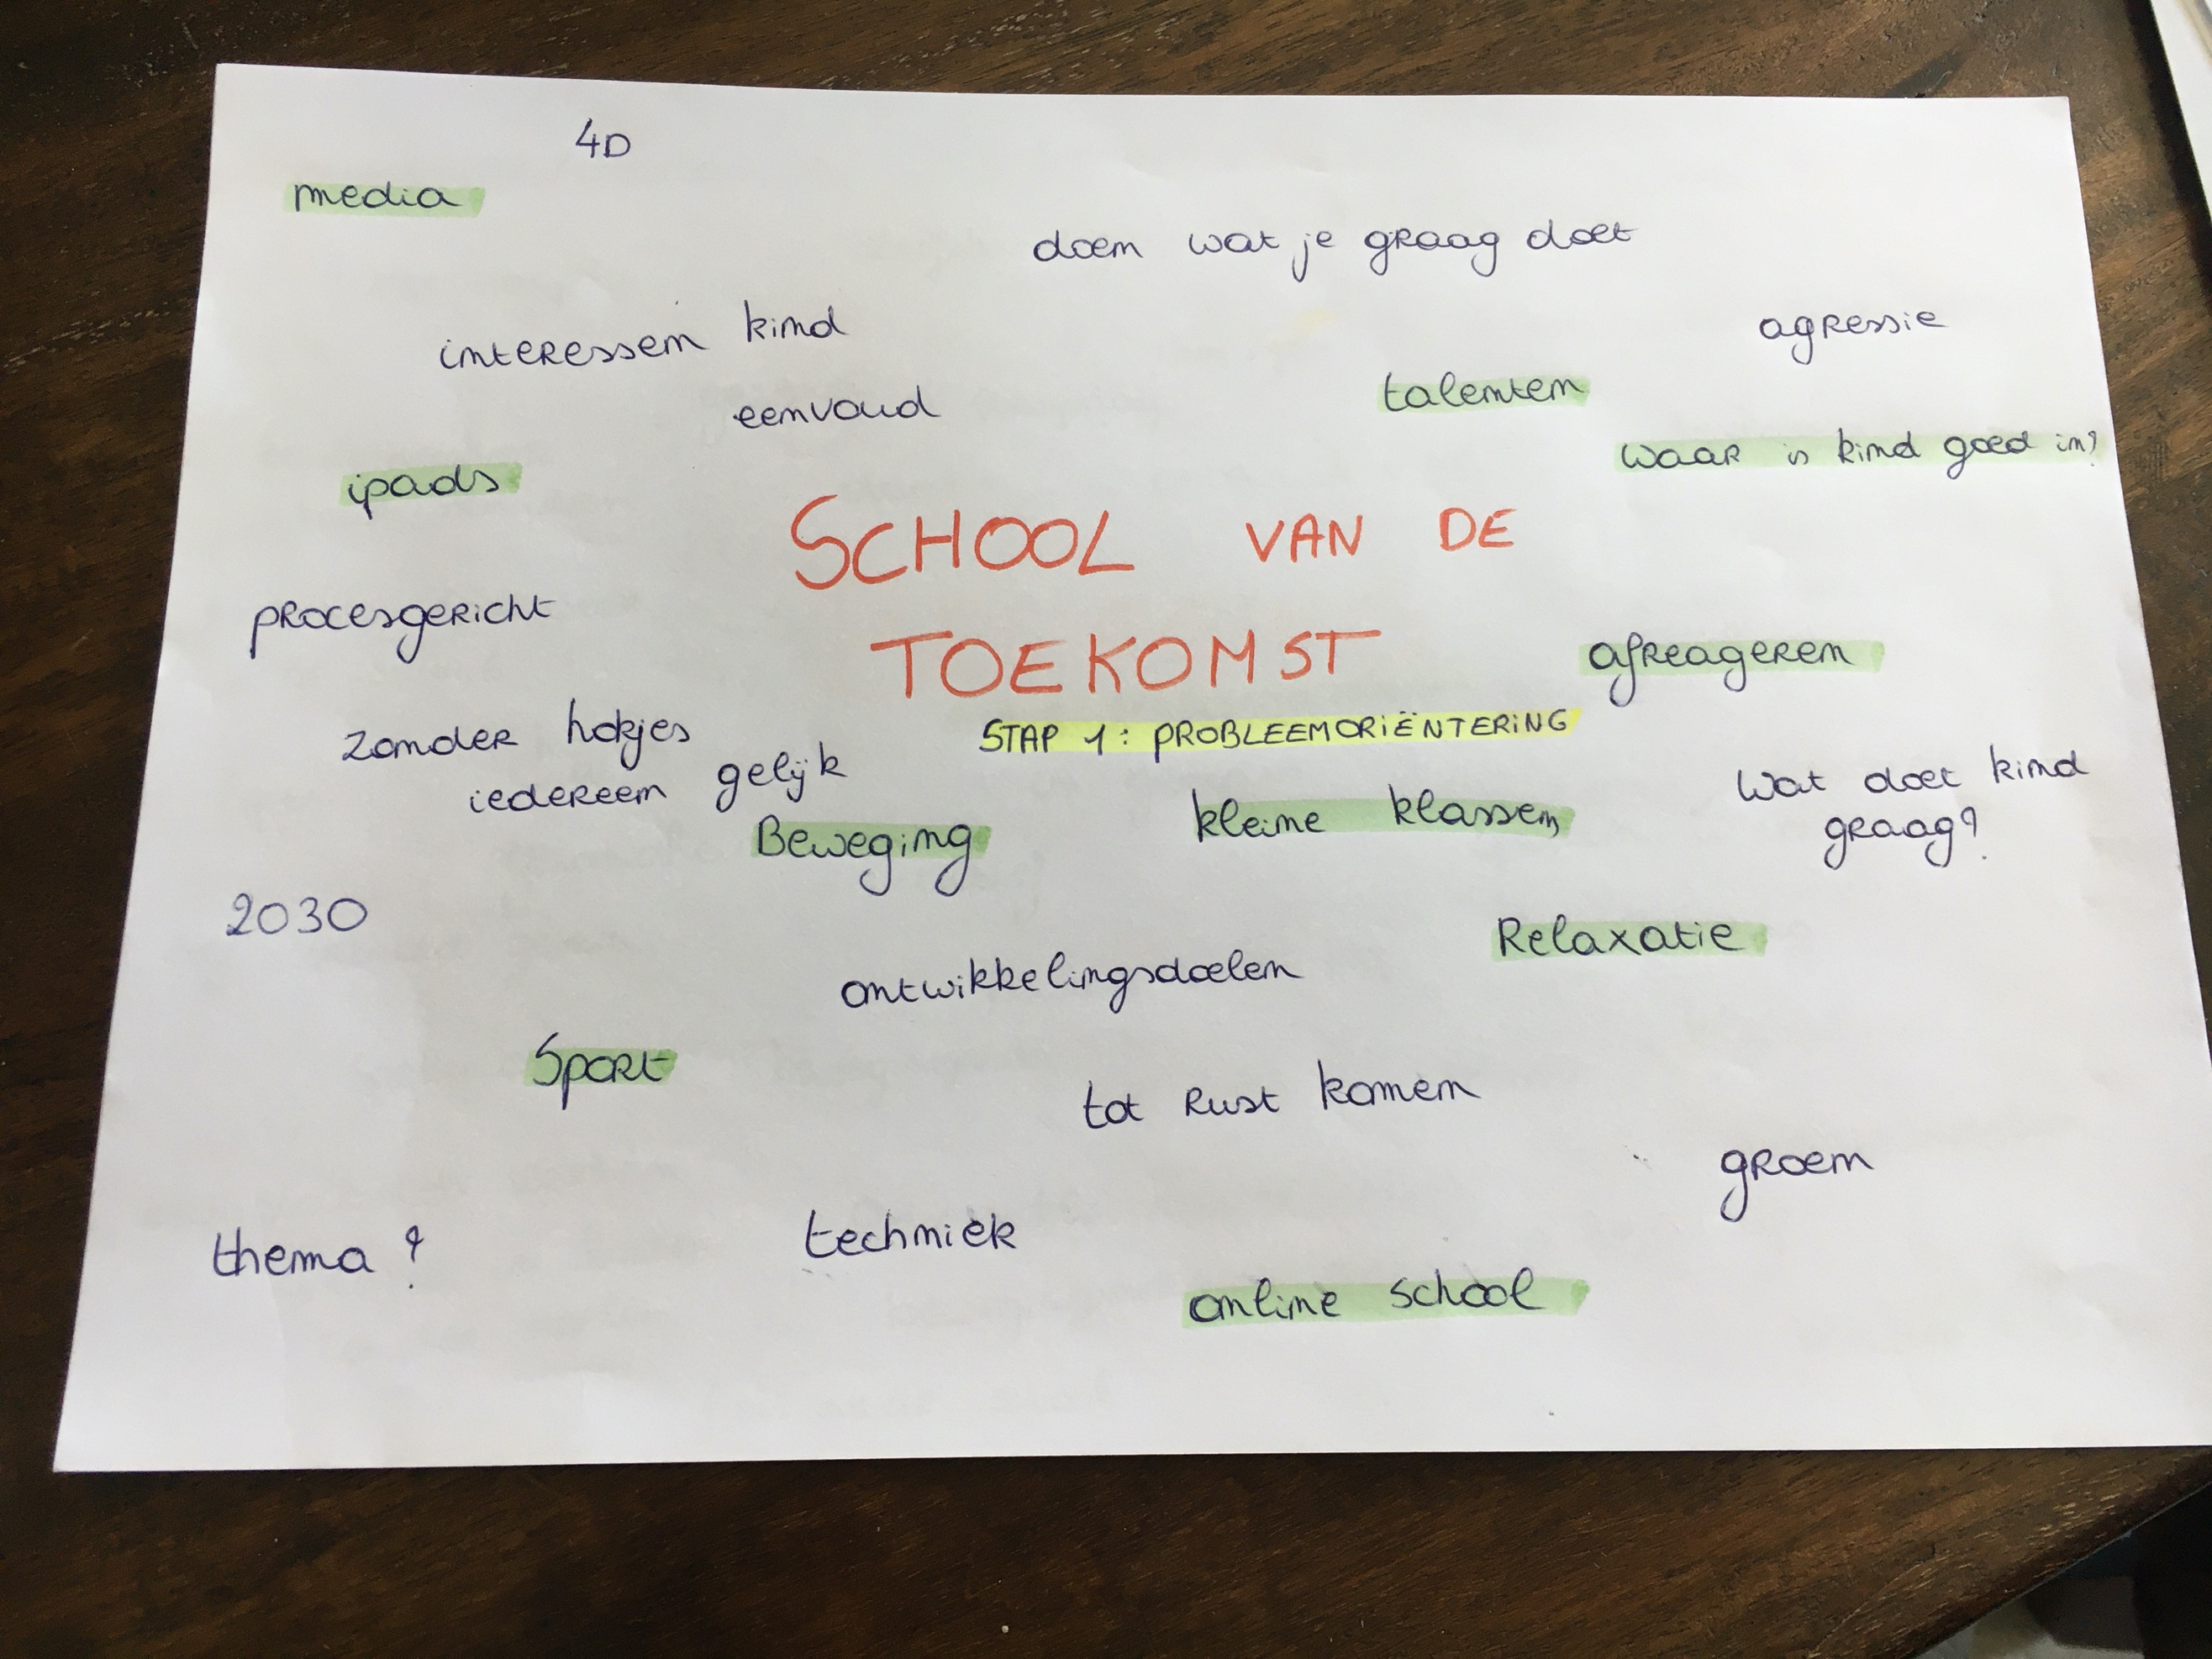 4D
media
doen wat je graag doet
interessen kind
agressie
eenvoud
talenten
waar is kind goed in?
ipads
SCHOOL VAN DE
TOEKOMST
procesgericht
afreageren
STAP 1: PROBLEEMORIËNTERING
zonder hokjes
iedereen gelijk
Beweging
kleine klassen
Wat doet kind
graag?
2030
Relaxatie
ontwikkelingsdoelen
Sport
tot rust komen
groen
thema?
techniek
online school